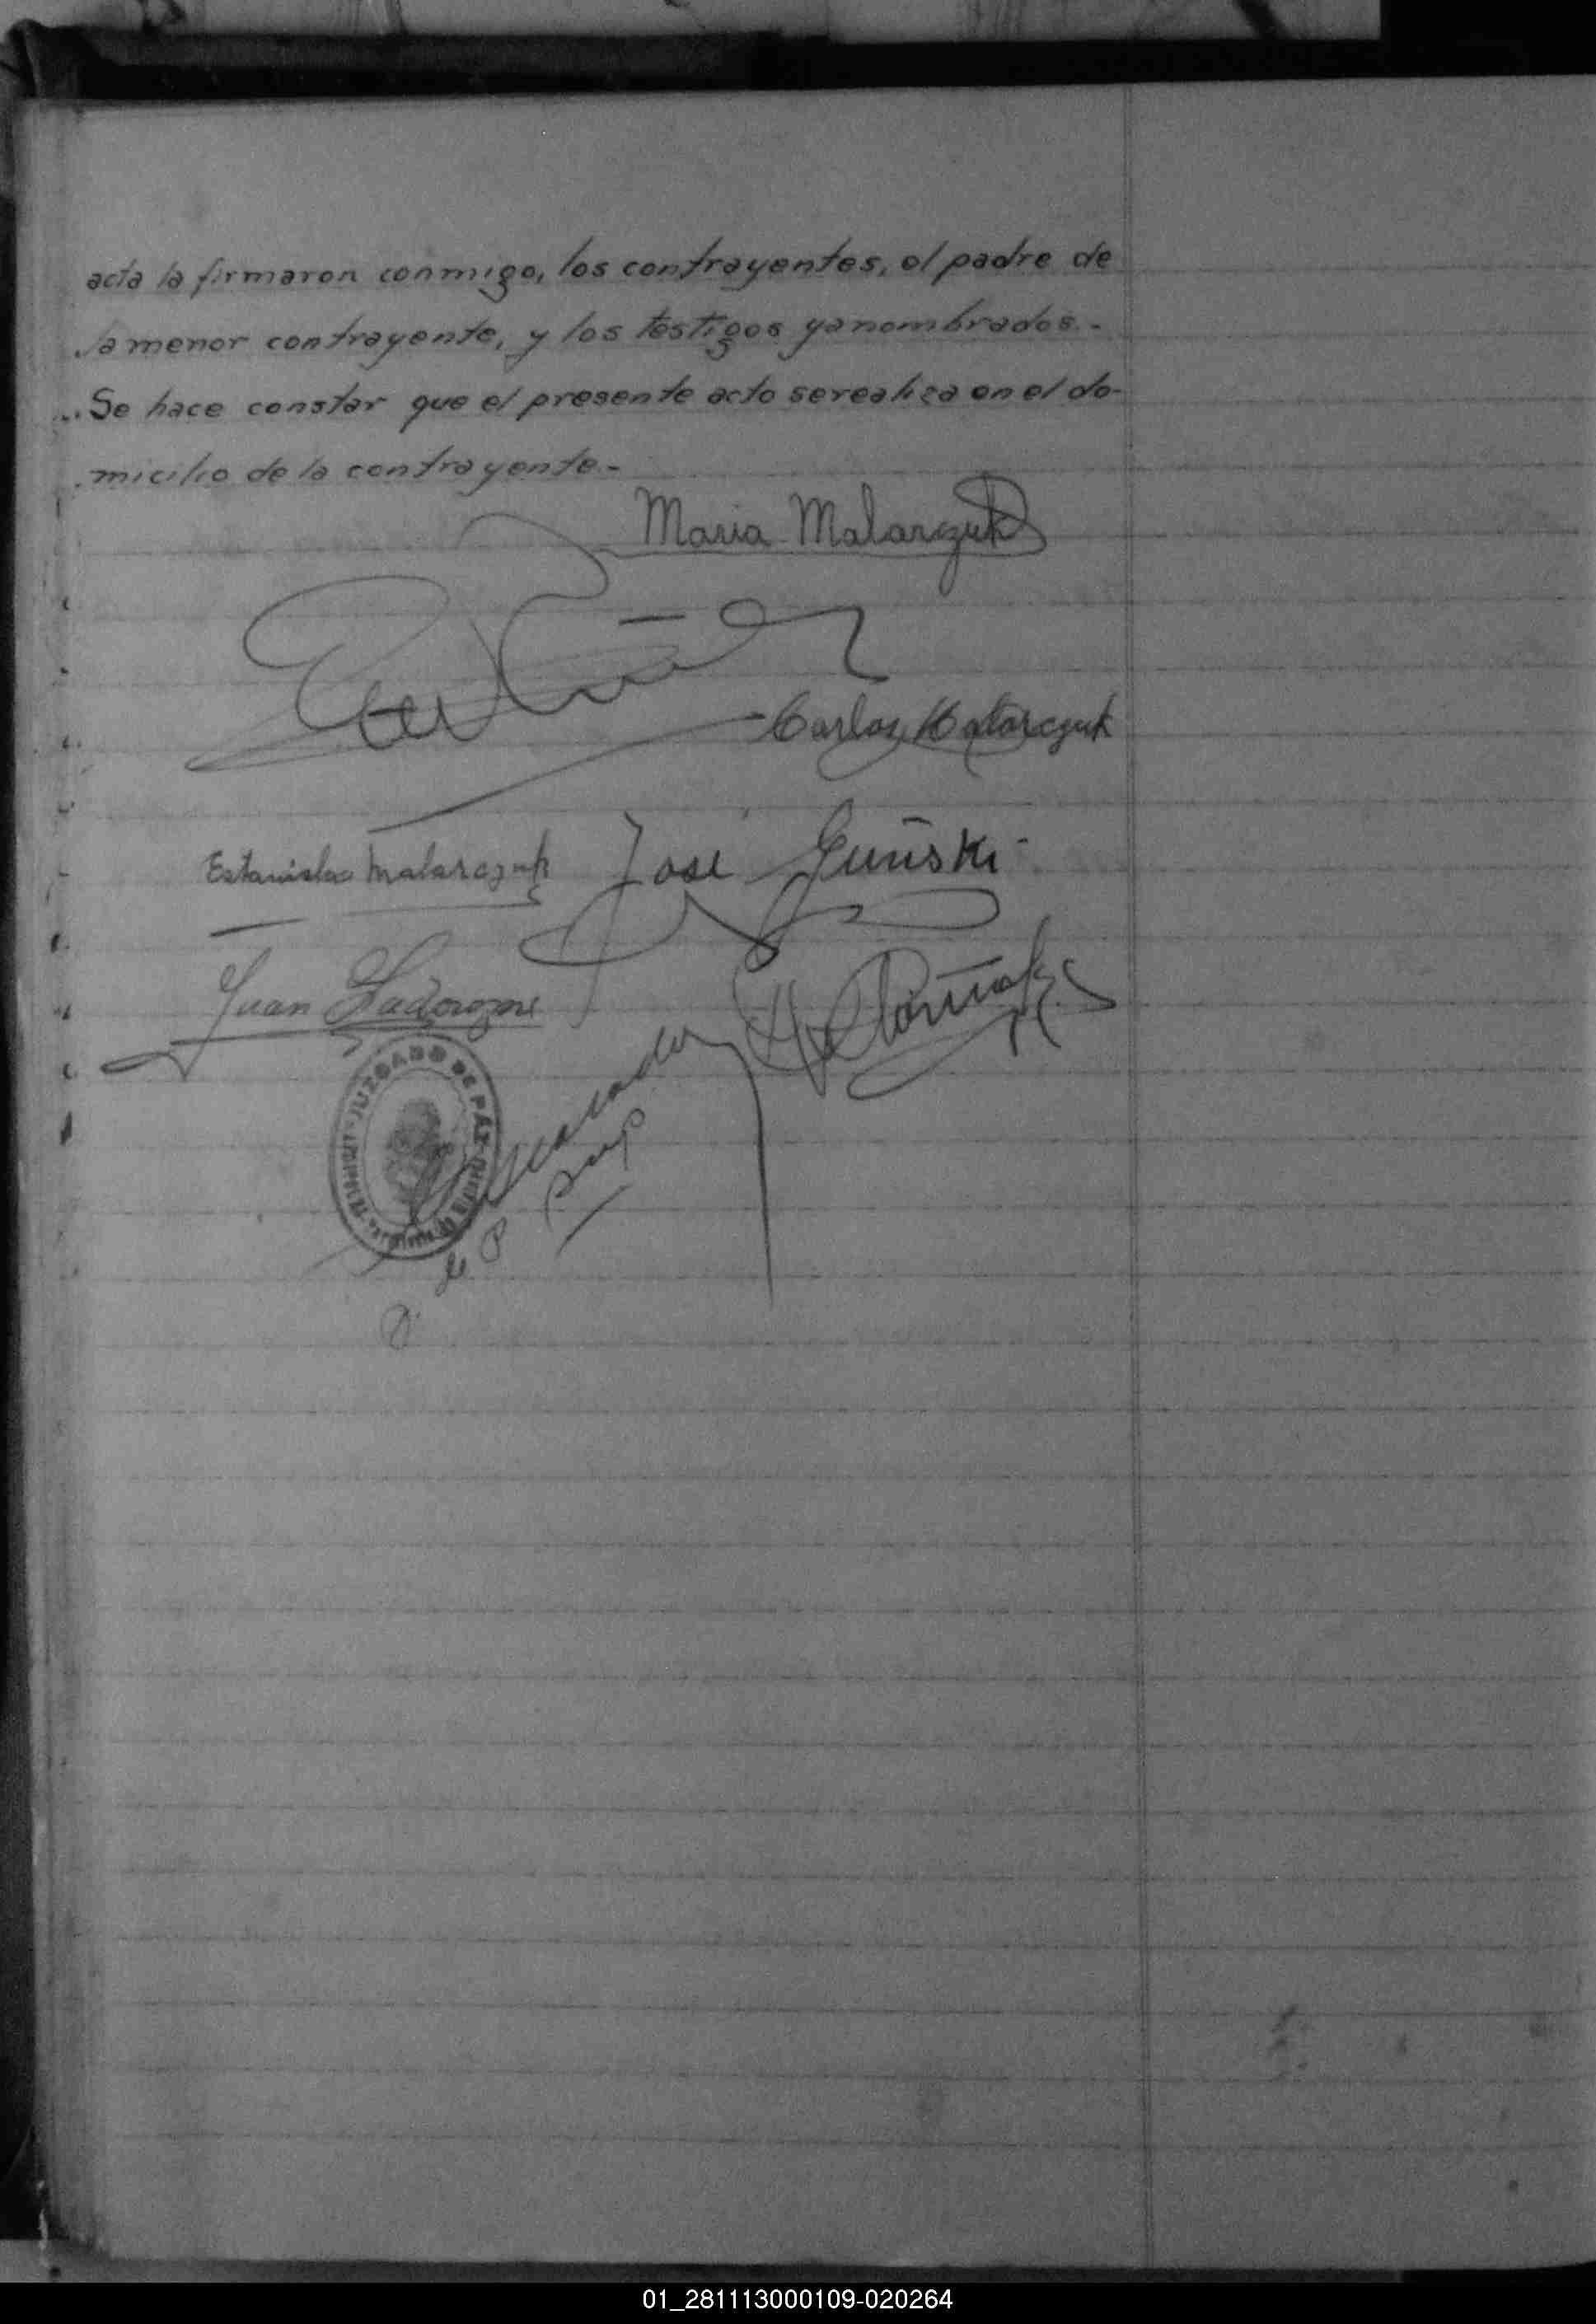 acta la firmaron conmigo, los contrayentes, el padre de
la menor contrayente, y los testigos ya nombrados.-
Se hace constar que el presente acto se realiza en el do-
micilio de la contrayente.-
Maria Malarczuk
Carlos Malarczuk
Estanislao Malarczuk
José
Juan
JUZGADO DE PAZ
01_281113000109-020264